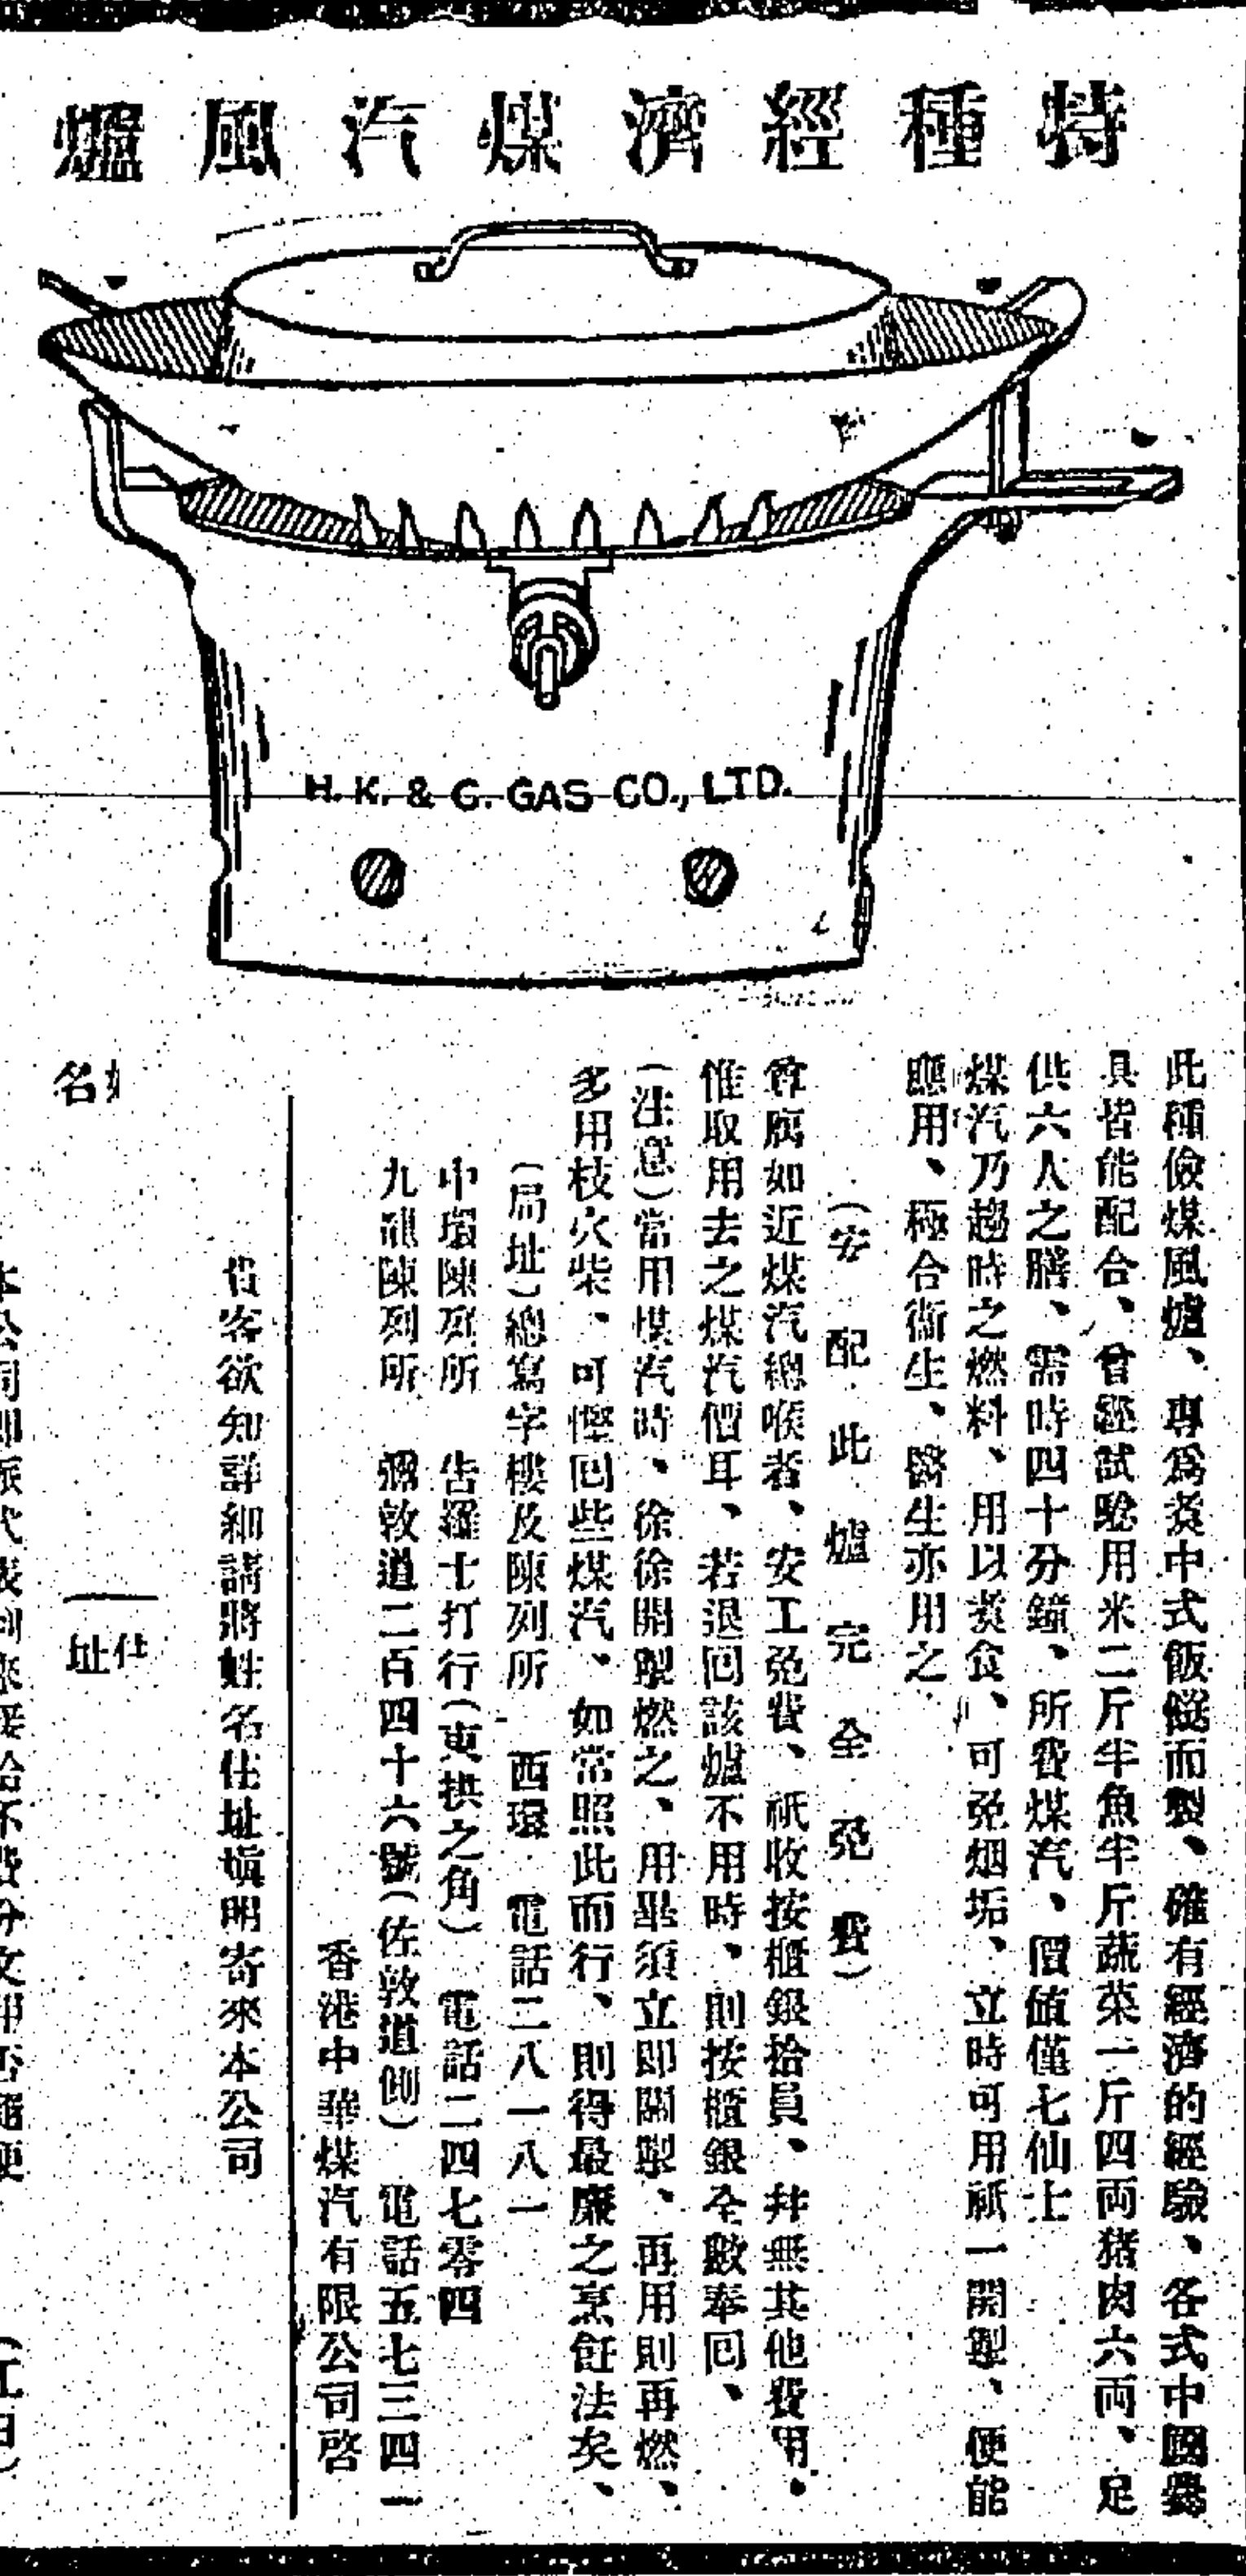 特種經濟煤汽風爐
H. K. & C. GAS CO., LTD.
此種儉煤風爐、專爲煑中式飯餸而製、確有經濟的經驗、各式中國爨
具皆能配合、曾經試驗用米二斤半魚半斤蔬菜一斤四両猪肉六両、足
供六人之膳、需時四十分鐘、所費煤汽、價値僅七仙士
煤汽乃趨時之燃料、用以煑食、可免烟垢、立時可用祇一開掣、便能
應用、極合衞生、醫生亦用之
（安配此爐完全免費）
尊厨如近煤汽總喉者、安工免費、祇收按櫃銀拾員、幷無其他費用、
惟取用去之煤汽價耳、若退囘該爐不用時、則按櫃銀全數奉囘、
（注意）當用煤汽時、徐徐開掣燃之、用畢須立即關掣、再用則再燃、
多用枝火柴、可慳囘些煤汽、如常照此而行、則得最廉之烹飪法矣、
（局址）總寫字樓及陳列所 西環 電話二八一八一
中環陳列所 告羅士打行（東拱之角） 電話二四七零四
九龍陳列所 彌敦道二百四十六號（佐敦道側） 電話五七三四一
香港中華煤汽有限公司啓
貴客欲知詳細請將姓名住址塡明寄來本公司
姓名
住址